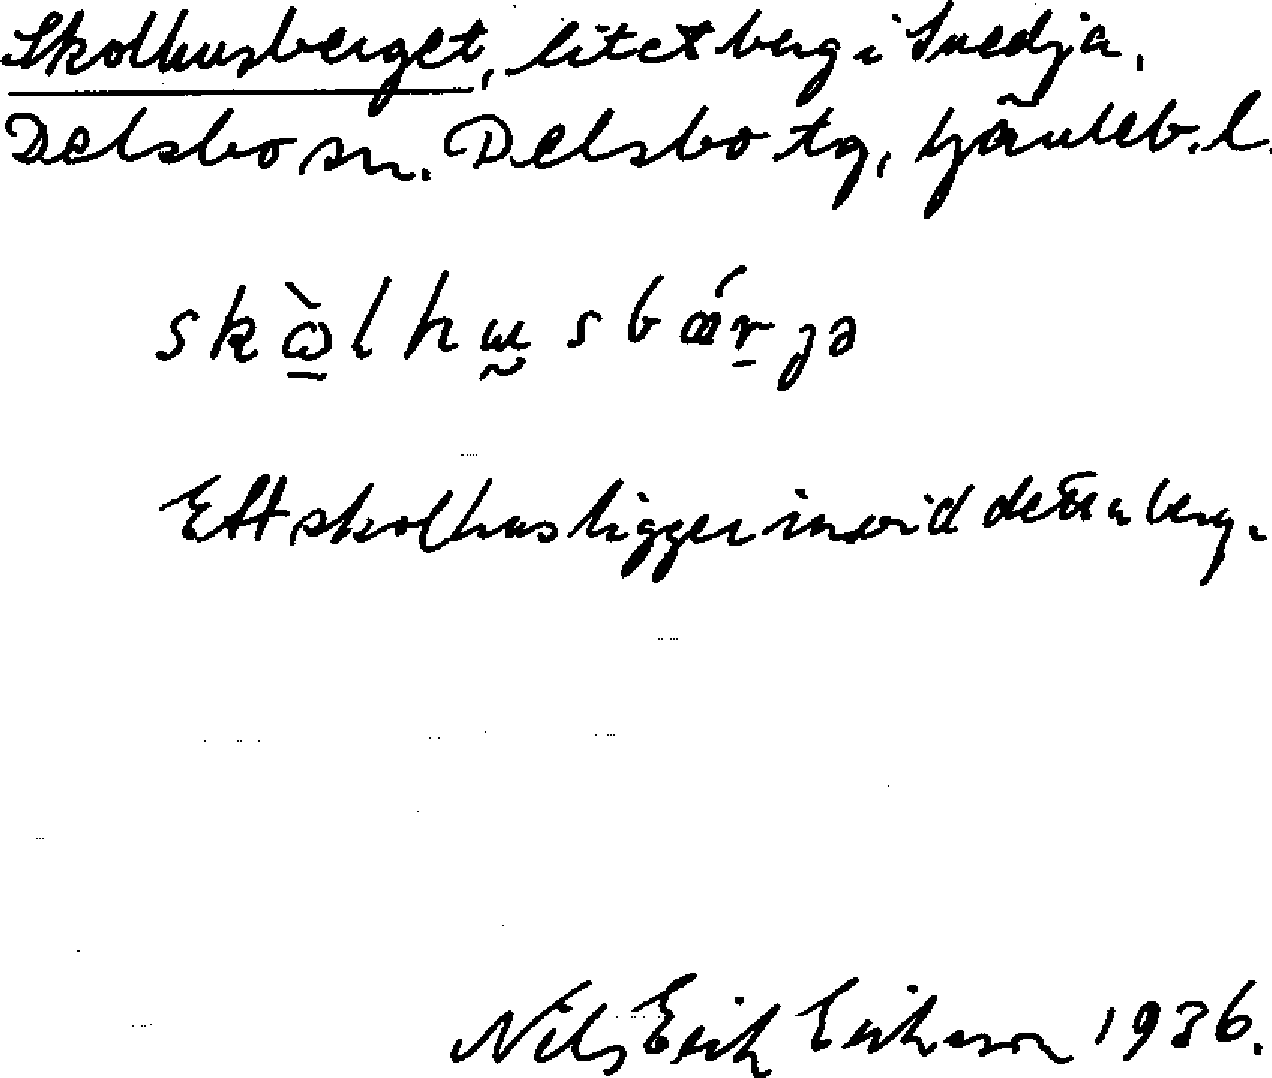 Skolhusberget, litet berg i Svedja,
Delsbo sn. Delsbo tg, Gävleb. l.
skὼlhɯsbǽrgə
Ett skolhus ligger invid detta berg.
Nils Erik Eriksson 1936.